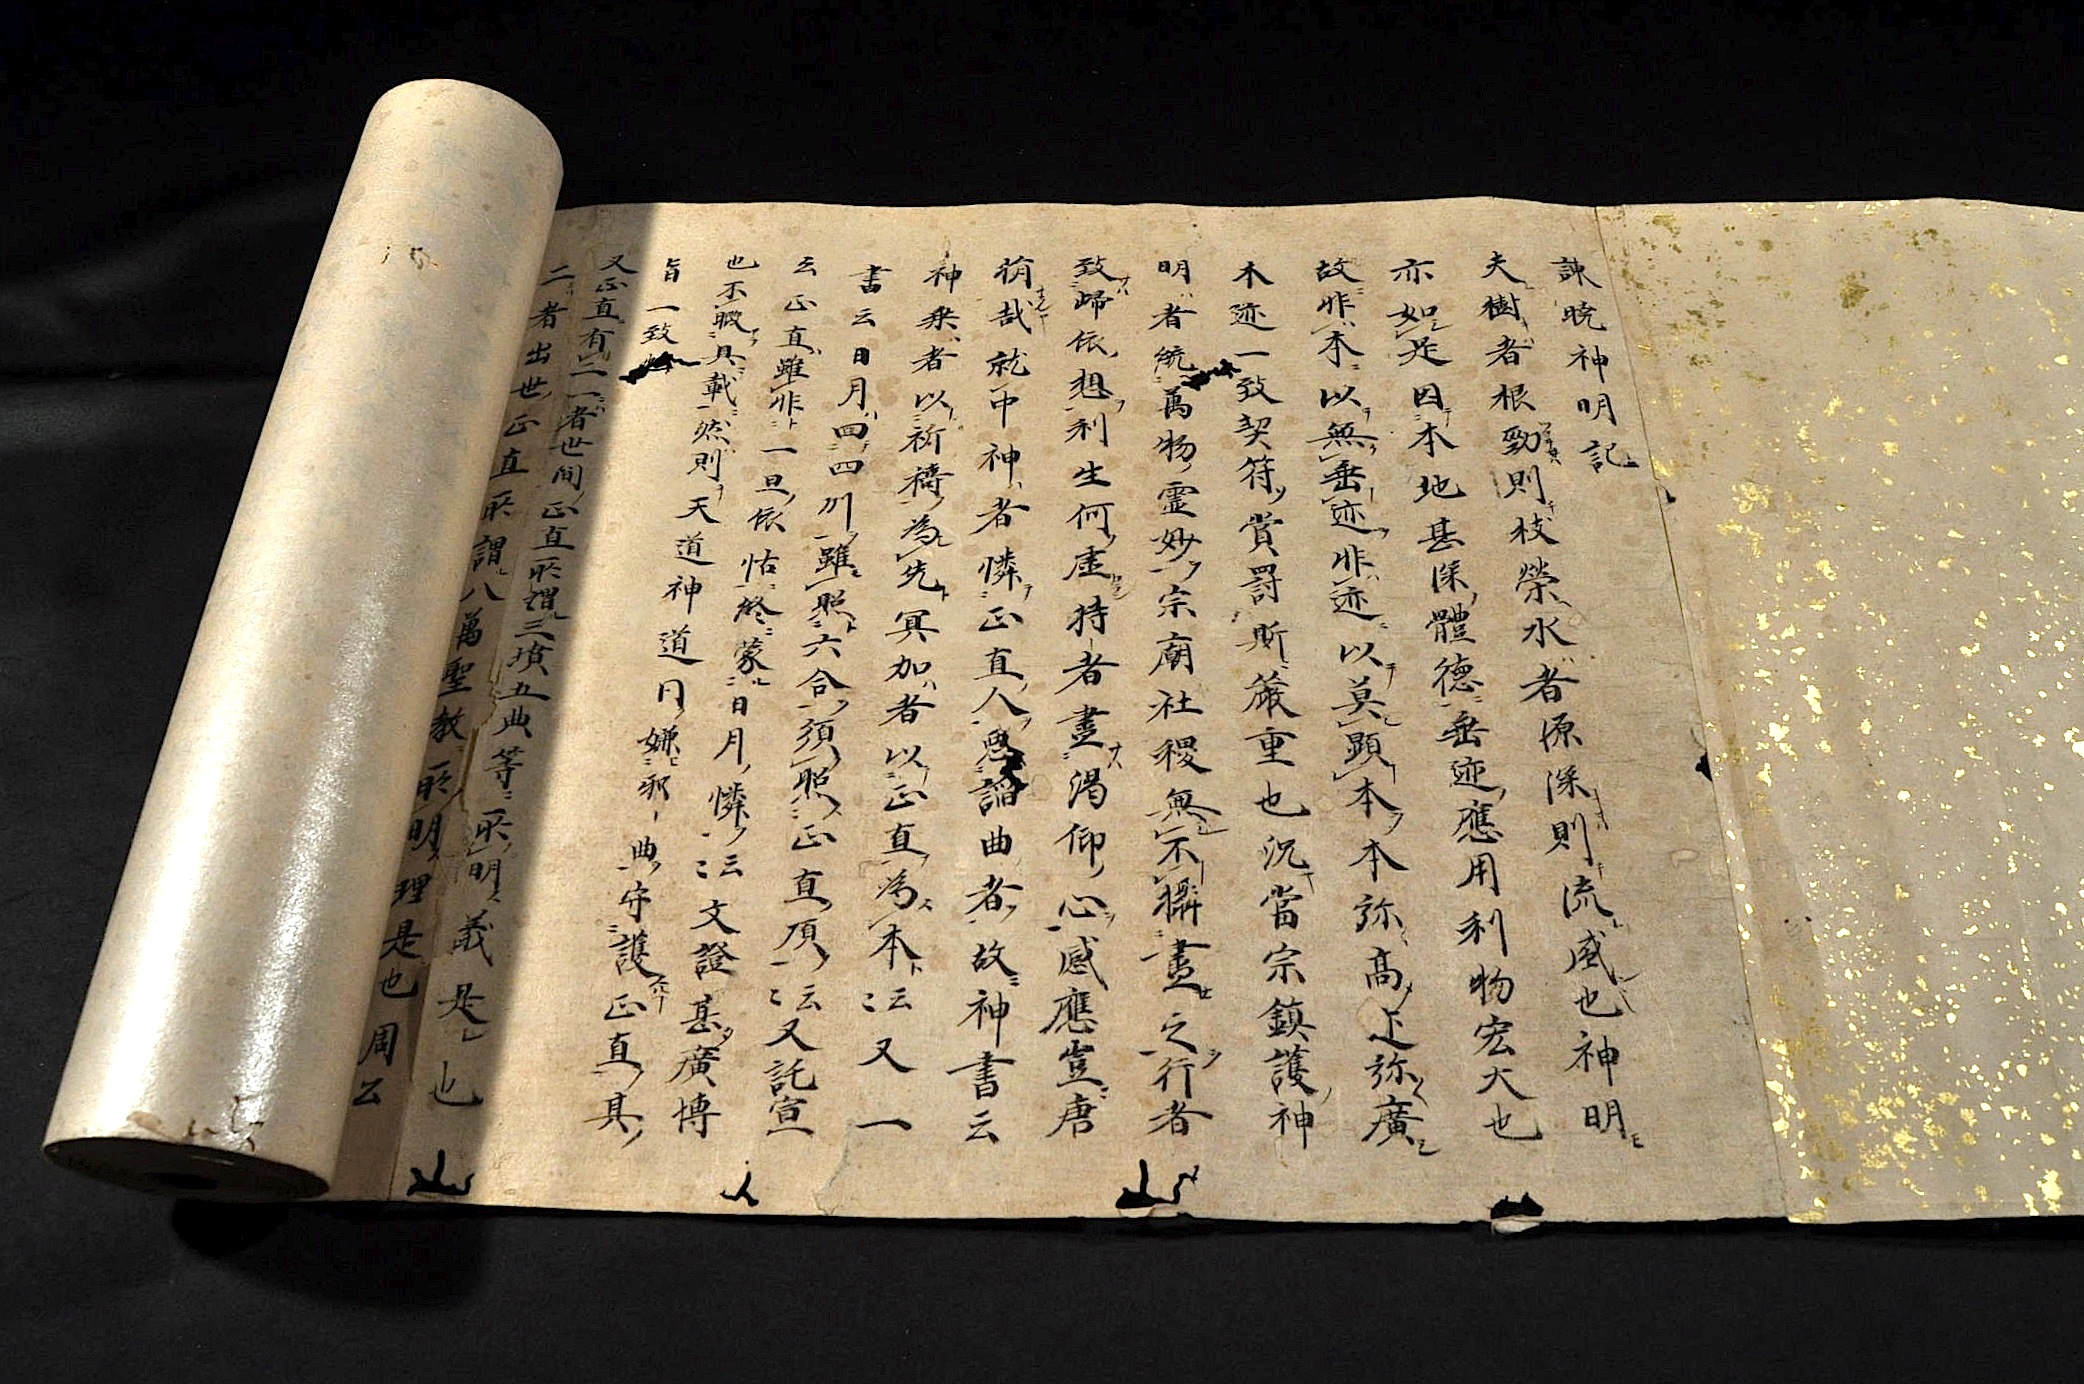 諫暁神明記
夫樹者根勁則枝榮水者源深則流盛也神明
亦如是因本地甚深體德垂迹應用利物宏大也
故非本以無垂迹非迹以莫顕本本弥高迹弥廣
本迹一致契符賞罸斯嚴重也况當宗鎮護神
明者統萬物霊妙宗廟社稷無不攝盡之行者
致歸依想利生何虚持者盡渇仰心感應豈唐
捐哉就中神者憐正直人悪謟曲者故神書云
神乗者以祈禱為先冥加者以正直為本云云又一
書云日月回四州雖照六合須照正直頂云云又託宣
云正直雖非一旦依怙終蒙日月憐云云文證甚廣博
也不暇具載然則天道神道同嫌邪曲守護正直其
旨一致
又正直有二一者世間正直所謂三墳五典等所明義是也
二者出世正直所謂八萬聖教所明理是也周公